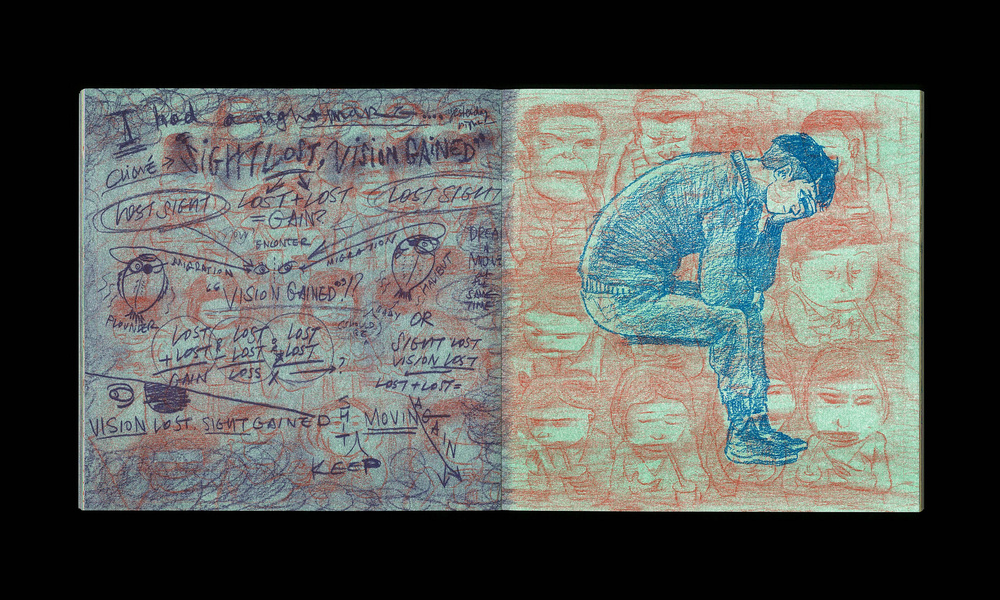 I had a nightmare.... yesterday night
CLICHÉ > "SIGHT LOST, VISION GAINED"
LOST SIGHT
LOST + LOST
= GAIN?
LOST SIGHT
ENCONTER
MIGRATION
MIGRATION
"VISION GAINED"!?
FLOUNDER
DREAM
A
MOVIE
AT
THE
SAME
TIME
LOST
+ LOST
GAIN
LOST
LOST
LOSS
LOST
LOST
X
?
OR
SIGHT LOST
VISION LOST
LOST + LOST =
VISION LOST SIGHT GAINED
SHIT
MOVING
AGAIN
KEEP